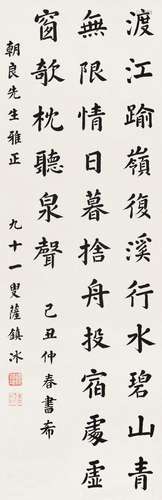 渡江踰嶺復溪行水碧山青
無限情日暮捨舟投宿處虛
窗欹枕聽泉聲 己丑仲春書布
朝良先生雅正 九十一叟薩鎮冰